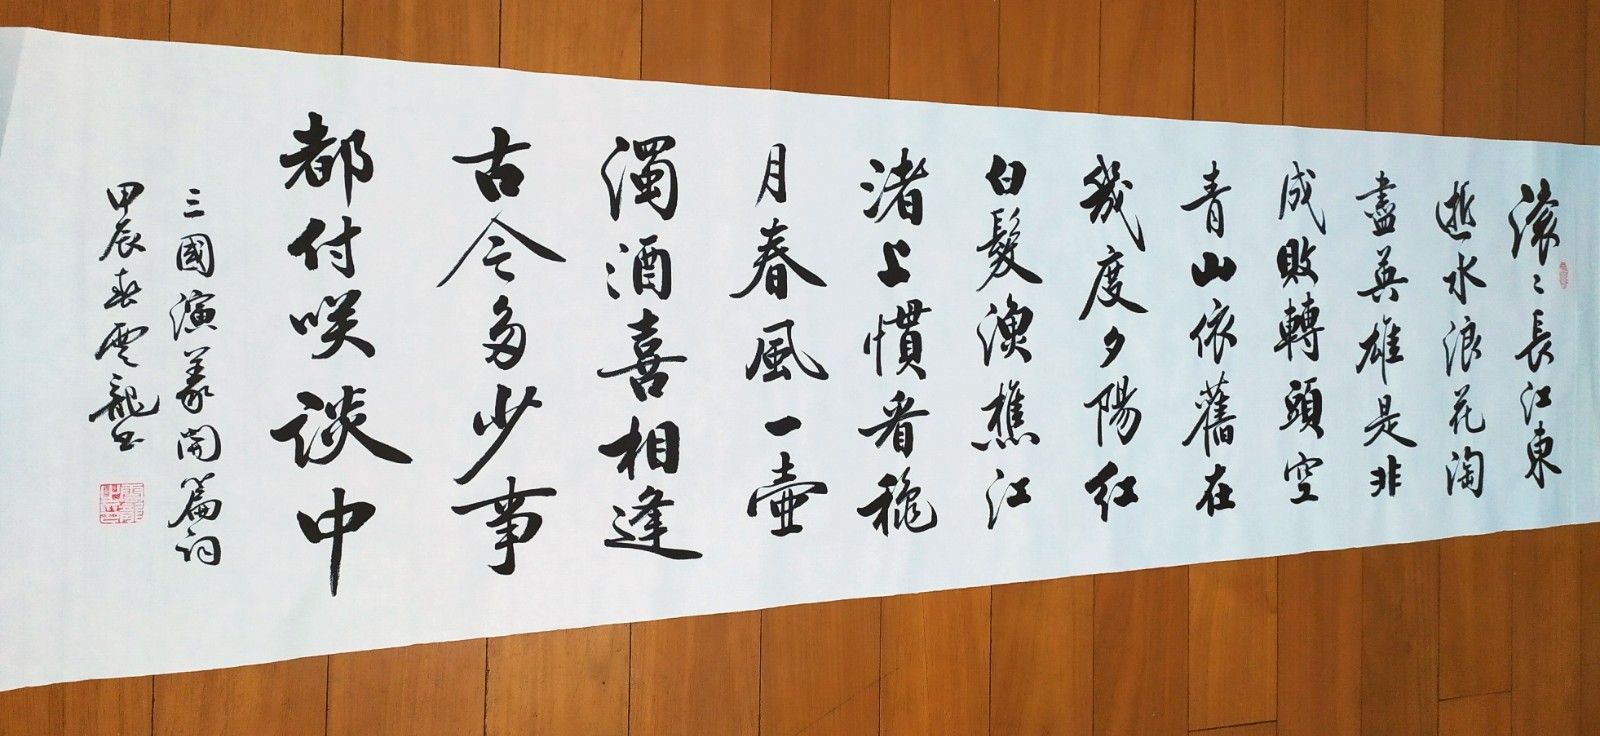 滚〻長江東
逝水浪花淘
盡英雄是非
成敗轉頭空
青山依舊在
幾度夕陽紅
白髮漁樵江
渚上慣看穐
月春風一壺
濁酒喜相逢
古今多少事
都付咲談中
三國演義開篇詞
甲辰春雲龍书